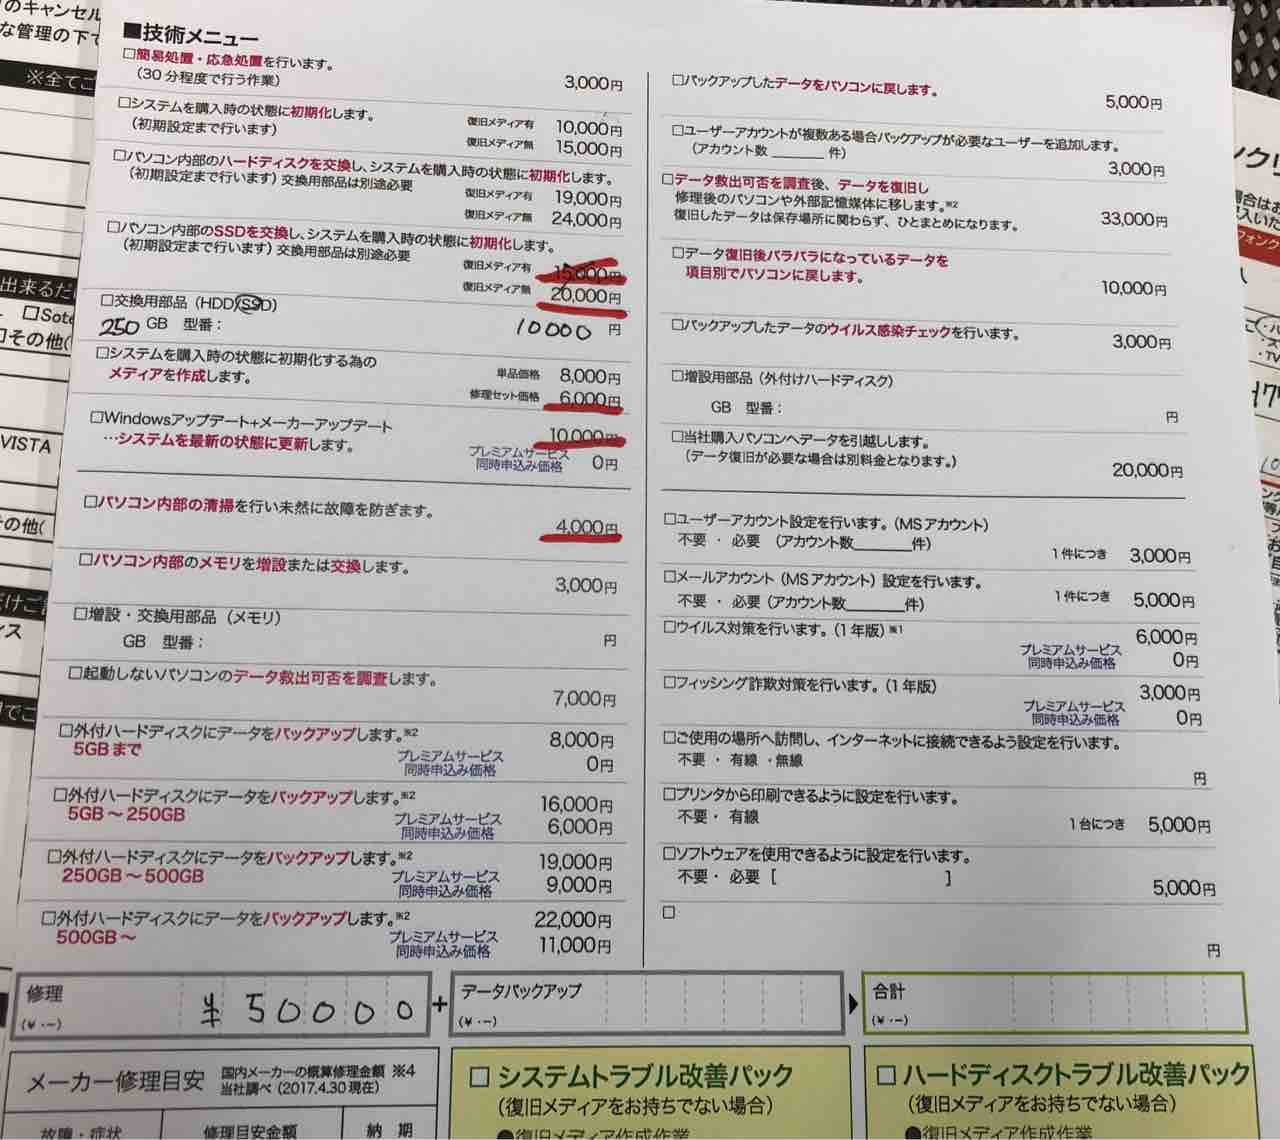 のキャンセル
な管理の下で
※全てご
出来るだ
□Sote
□その他(
VISTA
その他(
だけご
ィス
でこ
■技術メニュー
□簡易処置・応急処置を行います。
(30分程度で行う作業)
3,000円
□システムを購入時の状態に初期化します。
(初期設定まで行います)
復旧メディア有 10,000円
復旧メディア無 15,000円
□パソコン内部のハードディスクを交換し、システムを購入時の状態に初期化します。
(初期設定まで行います)交換用部品は別途必要
復旧メディア有 19,000円
復旧メディア無 24,000円
□パソコン内部のSSDを交換し、システムを購入時の状態に初期化します。
(初期設定まで行います)交換用部品は別途必要
復旧メディア有 15,000円
復旧メディア無 20,000円
□交換用部品(HDD/SSD)
250 GB 型番： 10000 円
□システムを購入時の状態に初期化する為の
メディアを作成します。
単品価格 8,000円
修理セット価格 6,000円
□Windowsアップデート+メーカーアップデート
…システムを最新の状態に更新します。
10,000円
プレミアムサービス
同時申込み価格 0円
□パソコン内部の清掃を行い未然に故障を防ぎます。
4,000円
□パソコン内部のメモリを増設または交換します。
3,000円
□増設・交換用部品(メモリ)
GB 型番： 円
□起動しないパソコンのデータ救出可否を調査します。
7,000円
□外付ハードディスクにデータをバックアップします。※2
5GBまで
8,000円
プレミアムサービス
同時申込み価格 0円
□外付ハードディスクにデータをバックアップします。※2
5GB～250GB
16,000円
プレミアムサービス
同時申込み価格 6,000円
□外付ハードディスクにデータをバックアップします。※2
250GB～500GB
19,000円
プレミアムサービス
同時申込み価格 9,000円
□外付ハードディスクにデータをバックアップします。※2
500GB～
22,000円
プレミアムサービス
同時申込み価格 11,000円
□バックアップしたデータをパソコンに戻します。
5,000円
□ユーザーアカウントが複数ある場合バックアップが必要なユーザーを追加します。
(アカウント数______件)
3,000円
□データ救出可否を調査後、データを復旧し
修理後のパソコンや外部記憶媒体に移します。※2
復旧したデータは保存場所に関わらず、ひとまとめになります。
33,000円
□データ復旧後バラバラになっているデータを
項目別でパソコンに戻します。
10,000円
□バックアップしたデータのウイルス感染チェックを行います。
3,000円
□増設用部品(外付けハードディスク)
GB 型番：
円
□当社購入パソコンへデータを引越しします。
(データ復旧が必要な場合は別料金となります。)
20,000円
□ユーザーアカウント設定を行います。(MSアカウント)
不要 ・ 必要 (アカウント数______件)
1件につき 3,000円
□メールアカウント(MSアカウント)設定を行います。
不要 ・ 必要(アカウント数______件)
1件につき 5,000円
□ウイルス対策を行います。(1年版)※1
6,000円
プレミアムサービス
同時申込み価格 0円
□フィッシング詐欺対策を行います。(1年版)
3,000円
プレミアムサービス
同時申込み価格 0円
□ご使用の場所へ訪問し、インターネットに接続できるよう設定を行います。
不要 ・ 有線 ・無線
円
□プリンタから印刷できるように設定を行います。
不要・ 有線
1台につき 5,000円
□ソフトウェアを使用できるように設定を行います。
不要・ 必要 [ ]
5,000円
□
円
修理
(￥.-)
¥50000
+
データバックアップ
(￥.-)
合計
(￥.-)
メーカー修理目安
国内メーカーの概算修理金額 ※4
当社調べ(2017.4.30現在)
故障・症状 修理目安金額 納 期
□ システムトラブル改善パック
(復旧メディアをお持ちでない場合)
●復旧メディア作成作業
□ ハードディスクトラブル改善パック
(復旧メディアをお持ちでない場合)
●復旧メディア作成作業